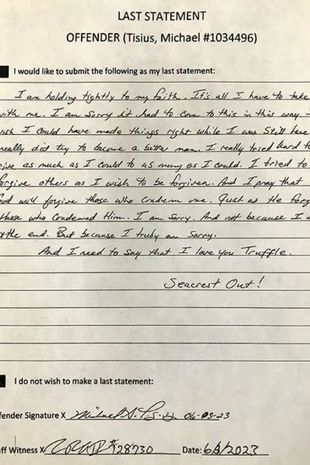 LAST STATEMENT
OFFENDER (Tisius, Michael #1034496)
I would like to submit the following as my last statement:
I am holding tightly to my faith. It's all I have to take
with me. I am sorry it had to come to this in this way
ish I could have made things right while I was still here
really did try to become a better man. I really tried hard to
give as much as I could to as many as I could. I tried to
forgive others as I wish to be forgiven. And I pray that
God will forgive those who condemn me. Just as He forga
those who condemned Him. I am sorry. And not because I a
the end. But because I truly am sorry.
And I need to say that I love you Truffle.
Seacrest Out!
I do not wish to make a last statement:
fender Signature X 06-05-23
aff Witness X 28730 Date: 6/5/2023